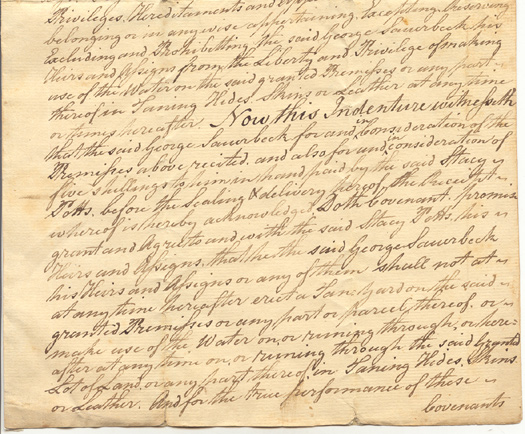 Priviledges, Hereditaments and
belonging or in any wise appertaining. Excepting, Reserving
Excluding and Prohibitting the said George Sauerbeck his
Heirs and Assigns from the Liberty and Privilege of making
use of the Water on the said granted Premesses or any part
thereof in Taning Hides, Skins or Leather at any time
or times hereafter. Now this Indenture witnesseth
that the said George Sauerbeck for and in Consideration of the
Premesses above recited, and also for and consideration of
five shillings to him in hand paid by the said Stacy
Potts, before the Sealing & delivery hereof, the Receipt
whereof is hereby acknowledged Doth Covenant, promise
grant and Agree to and with the said Stacy Potts, his
Heirs and Assigns, that he the said George Sauerbeck
his Heirs and Assigns or any of them shall not at
at any time hereafter erect a Tan Yard on the said
granted Premesses or any part or parcel thereof. or
make use of the Water on, or runing through, or here=
after at any time on, or runing through the said Granted
Lot of Land, or any part thereof in Taning Hides, Skins
or Leather. And for the true performance of these
Covenants